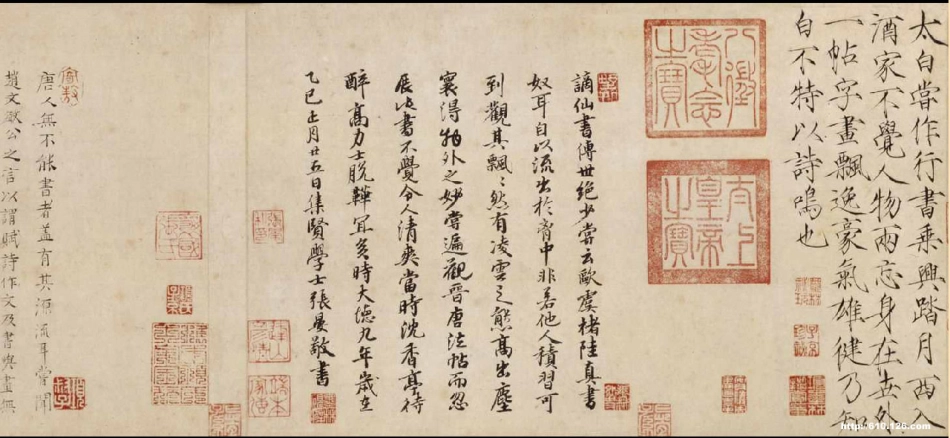 太白嘗作行書乘興踏月西入
酒家不覺人物兩忘身在世外
一帖字畫飄逸豪氣雄健乃知
白不特以詩鳴也
八徵耄念之寶
太上皇帝之寶
謫仙書傳世絶少嘗云歐虞褚陸真書
奴耳自以流出於胷中非若他人積習可
到觀其飄〻然有凌雲之態高出塵
寰得物外之妙嘗遍觀晉唐法帖而忽
展此書不覺令人清爽當時沈香亭待
醉高力士脱鞾宜矣時大德九年歲在
乙巳上月廿五日集賢學士張晏敬書
唐人無不能書者蓋有其源流耳嘗聞
趙文敏公之言以謂賦詩作文及書與畫無
http://610.126.com